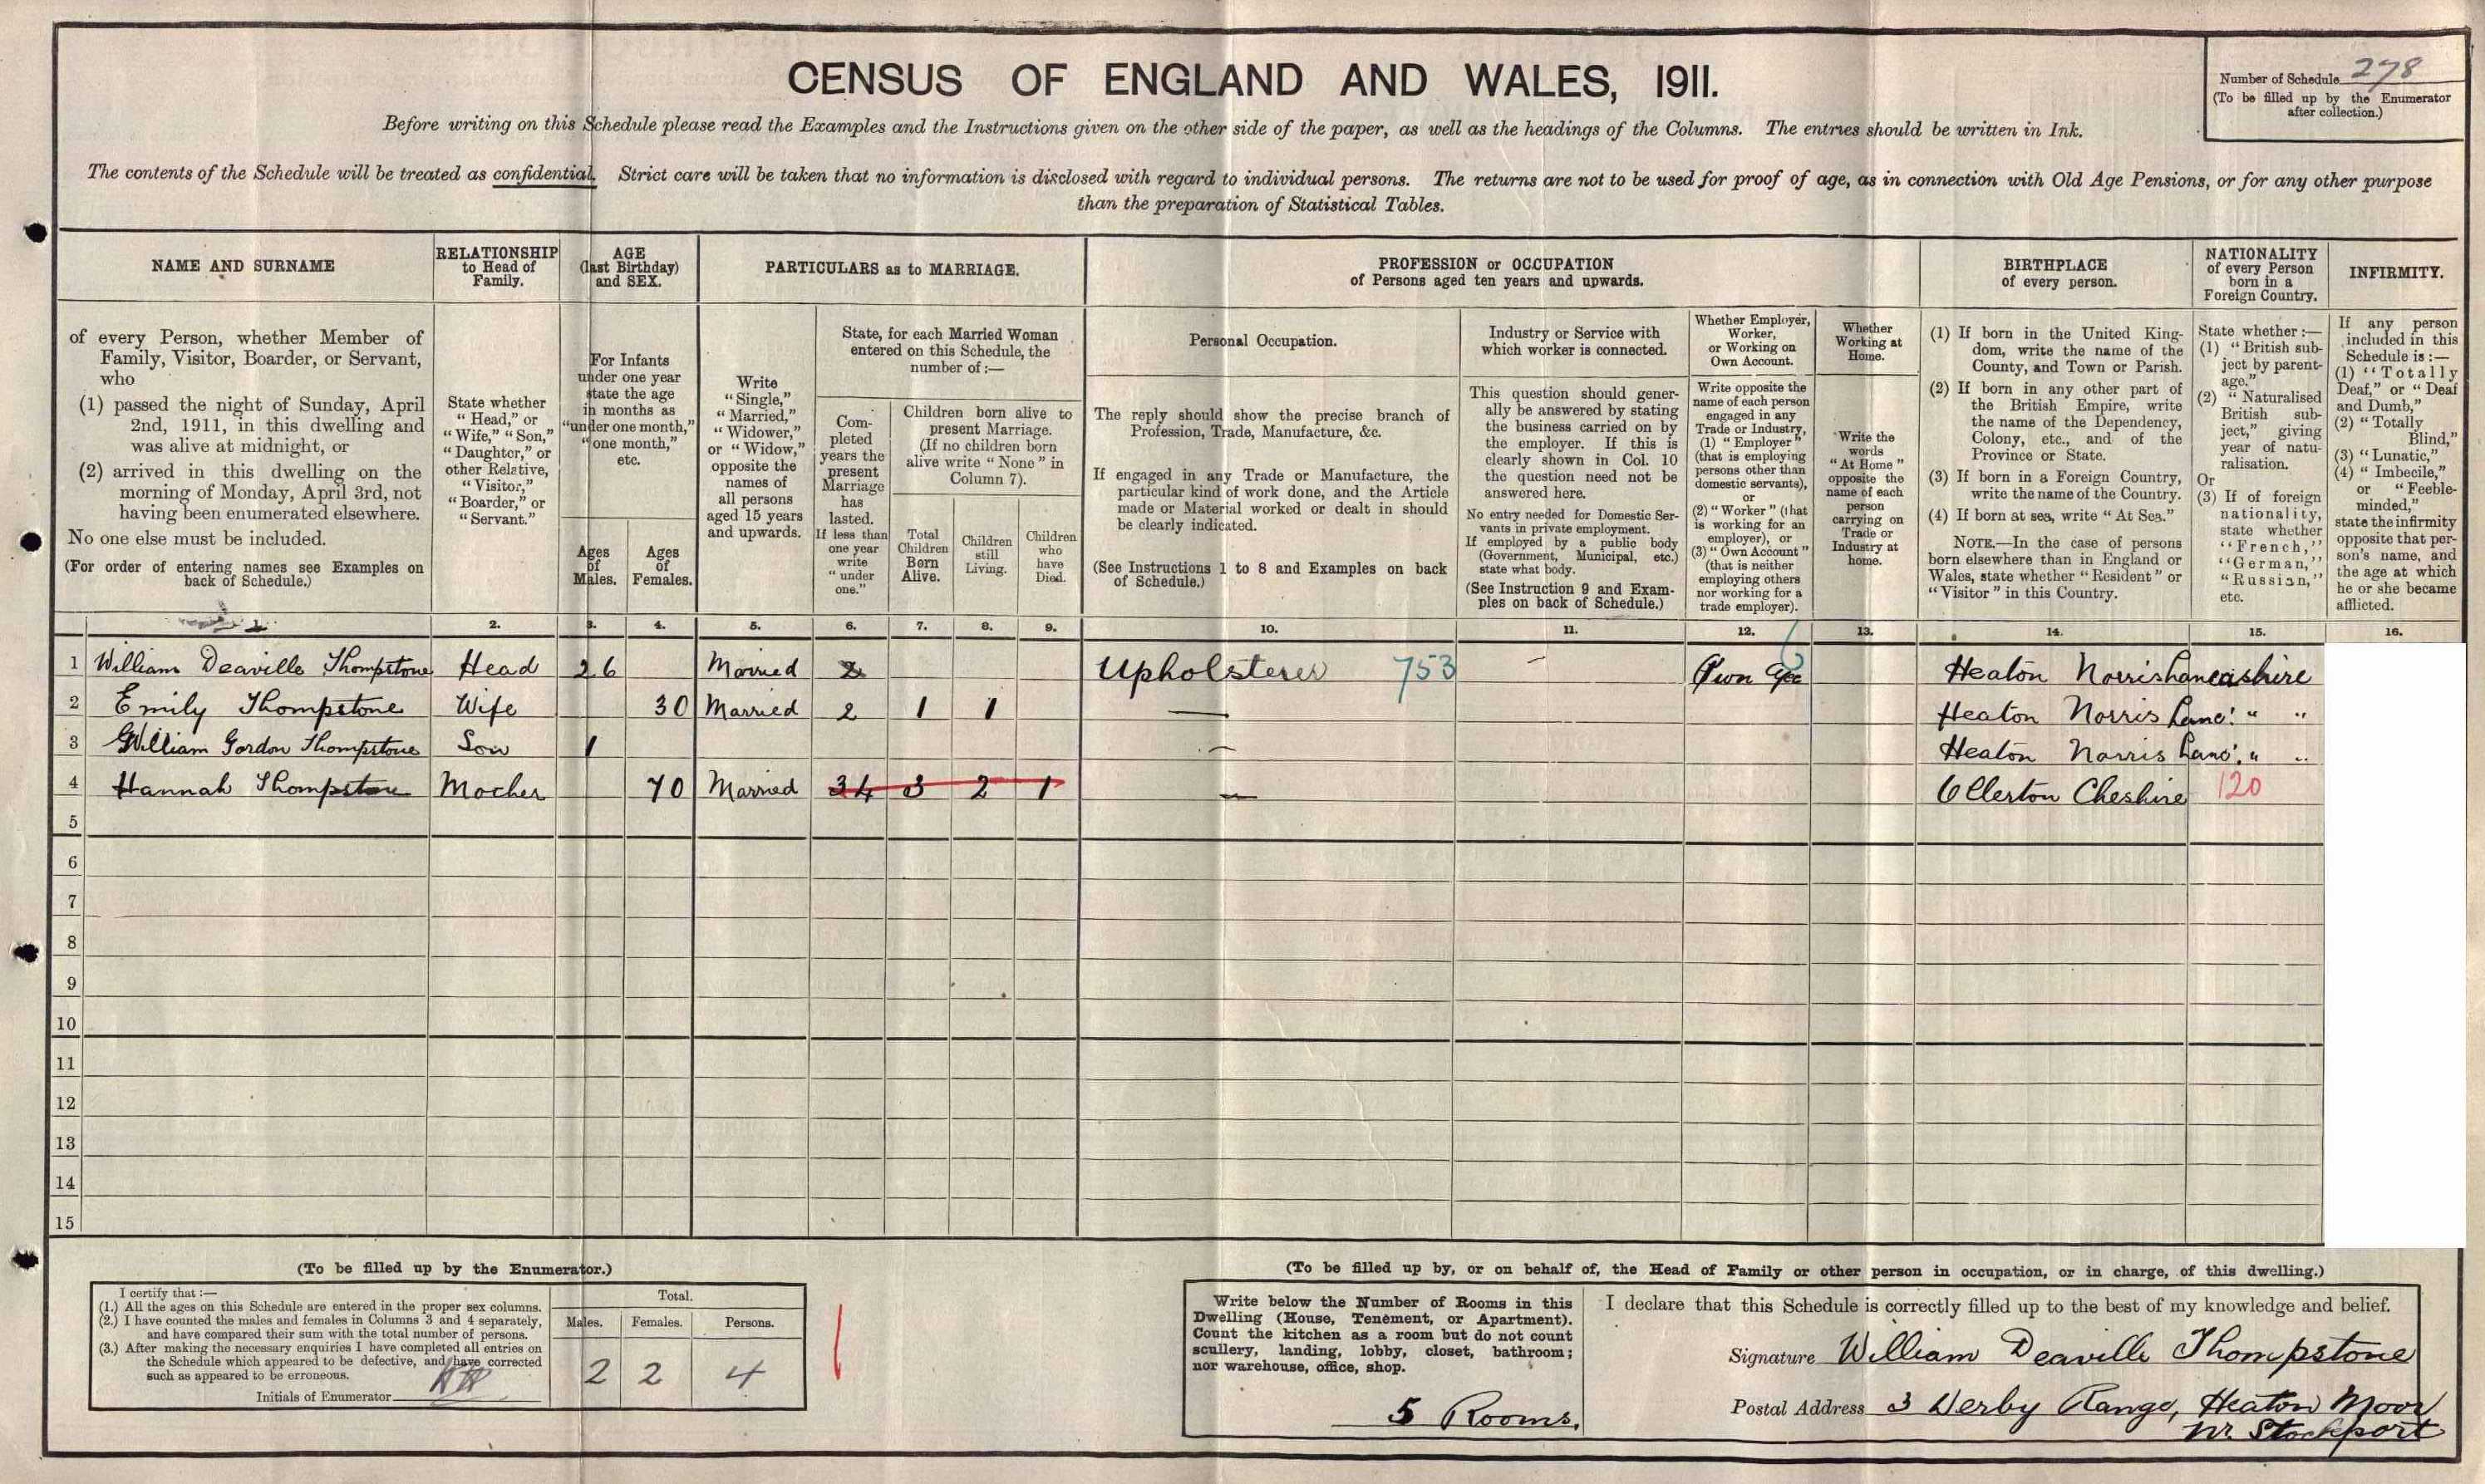 CENSUS OF ENGLAND AND WALES, 1911.
Number of Schedule 278
(To be filled up by the Enumerator
after collection.)
Before writing on this Schedule please read the Examples and the Instructions given on the other side of the paper, as well as the headings of the Columns. The entries should be written in Ink.
The contents of the Schedule will be treated as confidential. Strict care will be taken that no information is disclosed with regard to individual persons. The returns are not to be used for proof of age, as in connection with Old Age Pensions, or for any other purpose
than the preparation of Statistical Tables.
NAME AND SURNAME
of every Person, whether Member of
Family, Visitor, Boarder, or Servant,
who
(1) passed the night of Sunday, April
2nd, 1911, in this dwelling and
was alive at midnight, or
(2) arrived in this dwelling on the
morning of Monday, April 3rd, not
having been enumerated elsewhere.
No one else must be included.
(For order of entering names see Examples on
back of Schedule.)
RELATIONSHIP
to Head of
Family.
State whether
"Head," or
"Wife," "Son,"
"Daughter," or
other Relative,
"Visitor,"
"Boarder," or
"Servant."
AGE
(last Birthday)
and SEX.
For Infants
under one year
state the age
in months as
"under one month,"
"one month,"
etc.
Ages
of
Males.
Ages
of
Females.
PARTICULARS as to MARRIAGE.
Write
"Single,"
"Married,"
"Widower,"
or "Widow,"
opposite the
names of
all persons
aged 15 years
and upwards.
State, for each Married Woman
entered on this Schedule, the
number of:—
Com-
pleted
years the
present
Marriage
has
lasted.
If less than
one year
write
"under
one."
Children born alive to
present Marriage.
(If no children born
alive write "None" in
Column 7).
Total
Children
Born
Alive.
Children
still
Living.
Children
who
have
Died.
PROFESSION or OCCUPATION
of Persons aged ten years and upwards.
Personal Occupation.
The reply should show the precise branch of
Profession, Trade, Manufacture, &c.
If engaged in any Trade or Manufacture, the
particular kind of work done, and the Article
made or Material worked or dealt in should
be clearly indicated.
(See Instructions 1 to 8 and Examples on back
of Schedule.)
Industry or Service with
which worker is connected.
This question should gener-
ally be answered by stating
the business carried on by
the employer. If this is
clearly shown in Col. 10
the question need not be
answered here.
No entry needed for Domestic Ser-
vants in private employment.
If employed by a public body
(Government, Municipal, etc.)
state what body.
(See Instruction 9 and Exam-
ples on back of Schedule.)
Whether Employer,
Worker,
or Working on
Own Account.
Write opposite the
name of each person
engaged in any
Trade or Industry,
(1) "Employer"
(that is employing
persons other than
domestic servants),
or
(2) "Worker" (that
is working for an
employer), or
(3) "Own Account"
(that is neither
employing others
nor working for a
trade employer).
Whether
Working at
Home.
Write the
words
"At Home"
opposite the
name of each
person
carrying on
Trade or
Industry at
home.
BIRTHPLACE
of every person.
(1) If born in the United King-
dom, write the name of the
County, and Town or Parish.
(2) If born in any other part of
the British Empire, write
the name of the Dependency,
Colony, etc., and of the
Province or State.
(3) If born in a Foreign Country,
write the name of the Country.
(4) If born at sea, write "At Sea."
NOTE.—In the case of persons
born elsewhere than in England or
Wales, state whether "Resident" or
"Visitor" in this Country.
NATIONALITY
of every Person
born in a
Foreign Country.
State whether:—
(1) "British sub-
ject by parent-
age."
(2) "Naturalised
British sub-
ject," giving
year of natu-
ralisation.
Or
(3) If of foreign
nationality,
state whether
"French,"
"German,"
"Russian,"
etc.
INFIRMITY.
If any person
included in this
Schedule is:—
(1) "Totally
Deaf," or "Deaf
and Dumb,"
(2) "Totally
Blind,"
(3) "Lunatic,"
(4) "Imbecile,"
or "Feeble-
minded,"
state the infirmity
opposite that per-
son's name, and
the age at which
he or she became
afflicted.
1. 2. 3. 4. 5. 6. 7. 8. 9. 10. 11. 12. 13. 14. 15. 16.
1 William Deaville Thompstone Head 26 Married 2 Upholsterer 753 — Own Heaton Norris Lancashire
2 Emily Thompstone Wife 30 Married 2 1 1 — Heaton Norris Lanc: " "
3 William Gordon Thompstone Son 1 — Heaton Norris Lanc: " "
4 Hannah Thompstone Mother 70 Married 34 3 2 1 — Ollerton Cheshire 120
5
6
7
8
9
10
11
12
13
14
15
(To be filled up by the Enumerator.)
I certify that:—
(1.) All the ages on this Schedule are entered in the proper sex columns.
(2.) I have counted the males and females in Columns 3 and 4 separately,
and have compared their sum with the total number of persons.
(3.) After making the necessary enquiries I have completed all entries on
the Schedule which appeared to be defective, and have corrected
such as appeared to be erroneous.
Initials of Enumerator
Total.
Males. Females. Persons.
2 2 4
(To be filled up by, or on behalf of, the Head of Family or other person in occupation, or in charge, of this dwelling.)
Write below the Number of Rooms in this
Dwelling (House, Tenement, or Apartment).
Count the kitchen as a room but do not count
scullery, landing, lobby, closet, bathroom;
nor warehouse, office, shop.
5 Rooms.
I declare that this Schedule is correctly filled up to the best of my knowledge and belief.
Signature William Deaville Thompstone
Postal Address 3 Derby Range, Heaton Moor
Nr. Stockport